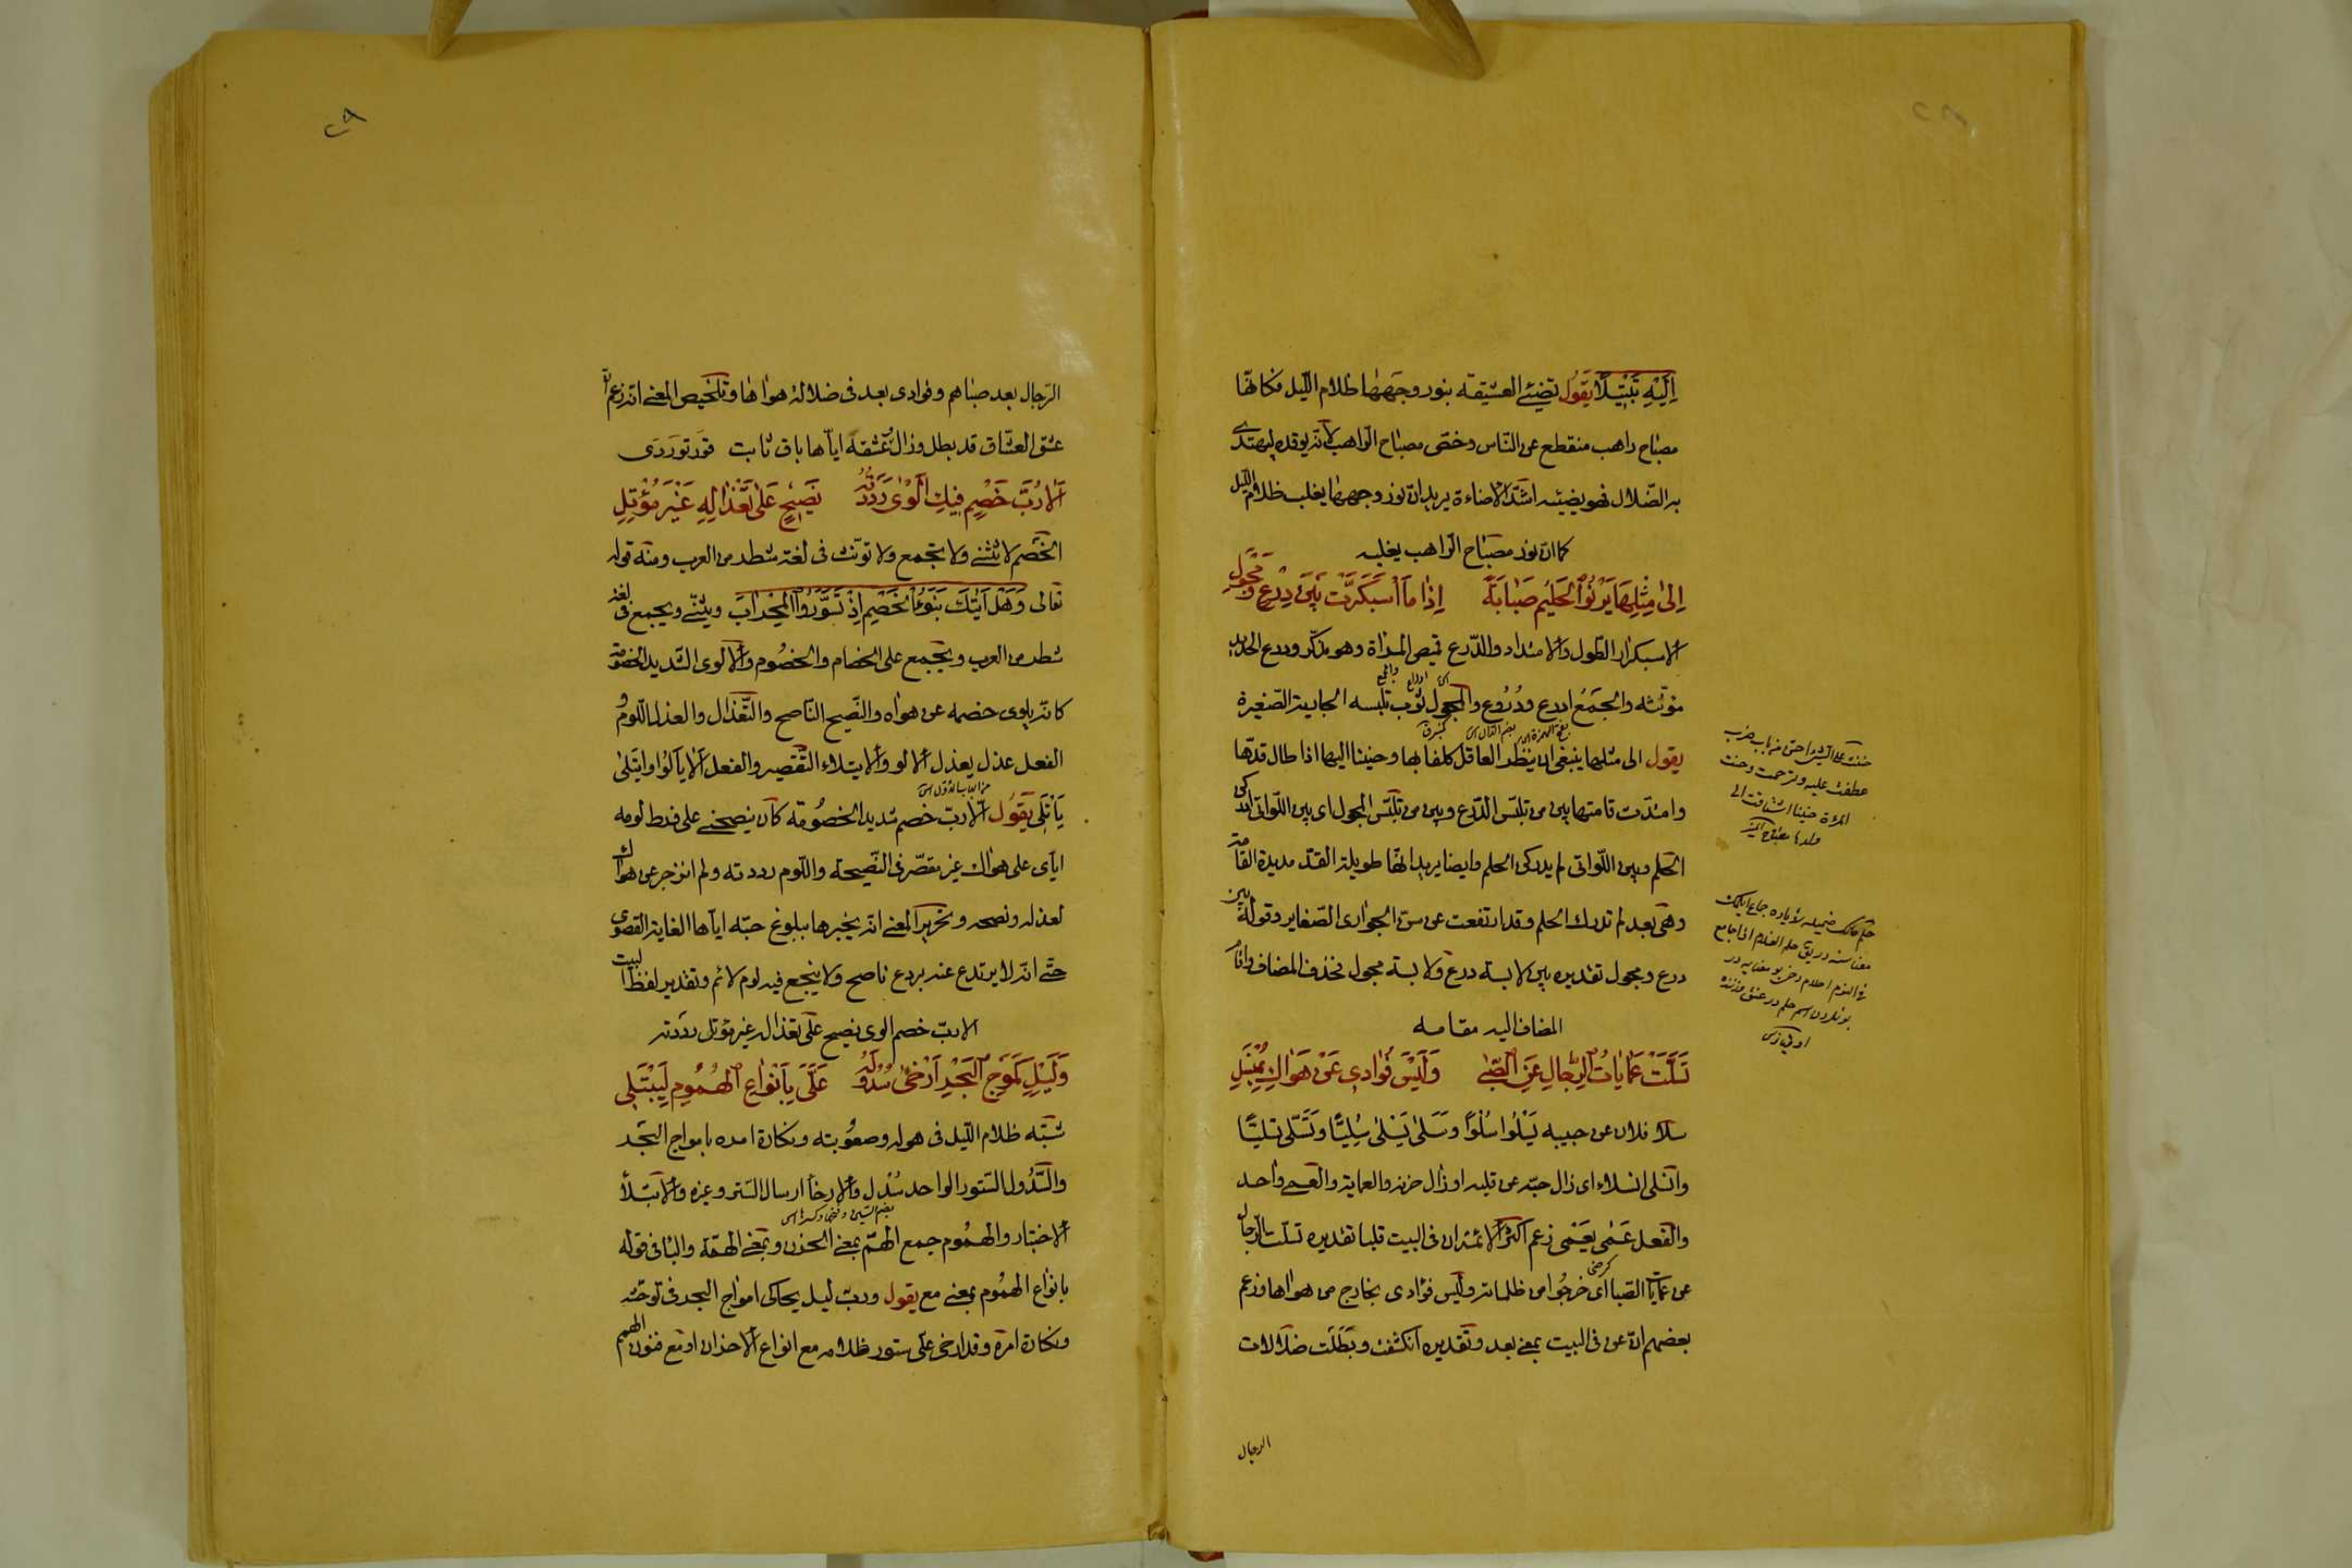 اِلَيْهِ تَبَتُّلًا يَقُول تضيئ العشيقه بنور وجهها ظلام اللّيل فكانّها
مصباح راهب منقطع عن النّاس وخصّ مصباح الرّاهب لانّه يوقده ليهتدى
به الضّلال فهو يضيئه اشدّ الاضاءة يريد انّ نور وجهها يغلب ظلام اللّيل
كما انّ نور مصباح الرّاهب يغلبه
اِلىٰ مِثْلِهَا يَرْنُوا الْحَلِيمُ صَبَابَةً اِذَا مَا اسْبَكَرَّتْ بَيْنَ دِرْعٍ وَمِجْوَلِ
الاسبكرار الطول والامتداد والدّرع قميص المراة وهو مذكّر ودرع الحديد
مؤنّثه والجَمْعُ ادرع ودُرُوع والمجول ثوب تلبسه الجارية الصّغيرة
يقول الى مثلها ينبغى ان ينظر العاقل كلفا بها وحنينا اليها اذا طال قدّها
وامتدّت قامتها بين من تلبّس الدّرع وبين من تلبّس المجول اى بين اللّواتى ادركن
الحلم وبين اللّواتى لم يدركن الحلم وايضا يريد انّها طويلة القدّ مديدة القامة
وهى بعد لم تدرك الحلم وقد ارتفعت عن سنّ الجوارى الصّغاير وقوله بين
درع ومجول تقديره بين لابسة درع ولابسة مجول فحذف المضاف واقام
المضاف اليه مقامه
تَسَلَّتْ عَمَايَاتُ الرِّجَالِ عَنِ الصِّبٰى وَلَيْسَ فُؤَادِى عَنْ هَوَاكِ بِمُنْسَلِ
سلا فلان عن حبيبه يَسْلُوا سُلُوًّا وسَلٰى يَسْلٰى سُلِيًّا وتَسَلّى تسليًّا
وانسلى انسلاء اى زال حبّه عن قلبه او زال حزنه والعماية والعمى واحد
والفعل عَمٰى يعْمٰى زعم اكثر الائمّة ان فى البيت قلبا تقديره تسلّت الرّجال
عن عمايات الصّبا اى خرجُوا من ظلماته وليس فؤادى بخارج من هواها وزعم
بعضهم انّ عن فى البيت بمعنى بعد وتقديره انكشفت وبطلت ضلالات
الرجال
٢٩
الرّجال بعد صباهم وفؤادى بعد فى ضلالة هواها وتلخيص المعنى انه زعم انّ
عشق العشّاق قد بطل وزال وعشقه ايّاها باق ثابت
اَلَا رُبَّ خَصْمٍ فِيكِ اَلْوٰى رَدَدْتُهُ نَصِيحٍ عَلٰى تَعْذَالِهِ غَيْرَ مُؤْتَلِ
الخصم لا يثنّى ولا يجمع ولا تؤنث فى لغة شطر من العرب ومنه قوله
تعالى وَهَلْ اَتٰيكَ نَبَؤُا الْخَصْمِ اِذْ تَسَوَّرُوا الْمِحْرَابَ ويثنّى ويجمع فى لغة
شطر من العرب ويجمع على الخصام والخصُوم والالوى الشّديد الخصومة
كانّه يلوى خصمه عن هواه والنّصيح النّاصح والتّعذال والعذل اللّوم و
الفعل عذل يعذل الالو والايتلاء التّقصير والفعل الا يألوا وايتلىٰ
يَأْتَلِى يَقُول الا ربّ خصم شديد الخصُومة كان ينصحنى على فرط لومه
ايّاى على هواك غير مقصّر فى النّصيحة واللّوم رددته ولم انزجر عن هواك
لعذله ونصحه وتحرير المعنى انه يخبرها ببلوغ حبّه ايّاها الغاية القصوى
حتّى انّه لا يرتدع عنه بردع ناصح ولا ينجع فيه لوم لائم وتقدير لفظ البيت
الا ربّ خصم الوى نصيح على تعذاله غير مؤتل رددته
وَلَيْلٍ كَمَوْجِ الْبَحْرِ اَرْخٰى سُدُولَهُ عَلَىَّ بِاَنْوَاعِ الْهُمُومِ لِيَبْتَلِى
شبّه ظلام اللّيل فى هوله وصعُوبته ونكارة امره بامواج البحر
والسّدُول السّتور الواحد سُدْل والارخاء ارسال السّتر وغيره والابتلاء
الاختبار والهمُوم جمع الهمّ بمعنى الحزن وبمعنى الهمّة والبا فى قوله
بانواع الهمُوم بمعنى مع يقول وربّ ليل يحاكى امواج البحر فى توحّشه
ونكارة امره وقد ارخى علىّ ستور ظلامه مع انواع الاحزان او مع فنون الهمم